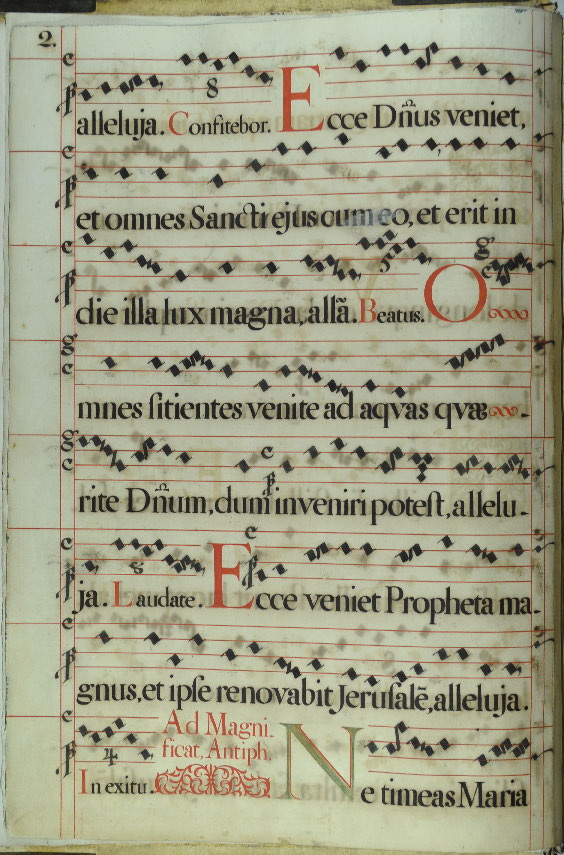 2.
alleluja. Confitebor. 8 Ecce Dn̄us veniet,
et omnes Sancti ejus cum eo, et erit in
die illa lux magna, allā. Beatus. O
mnes ſitientes venite ad aqvas qvæ-
rite Dn̄um, dum inveniri poteſt, allelu-
ja. Laudate. 8 Ecce veniet Propheta ma-
gnus, et ipſe renovabit Jeruſalē, alleluja.
Ad Magni-
ficat, Antiph.
4
In exitu. Ne timeas Maria